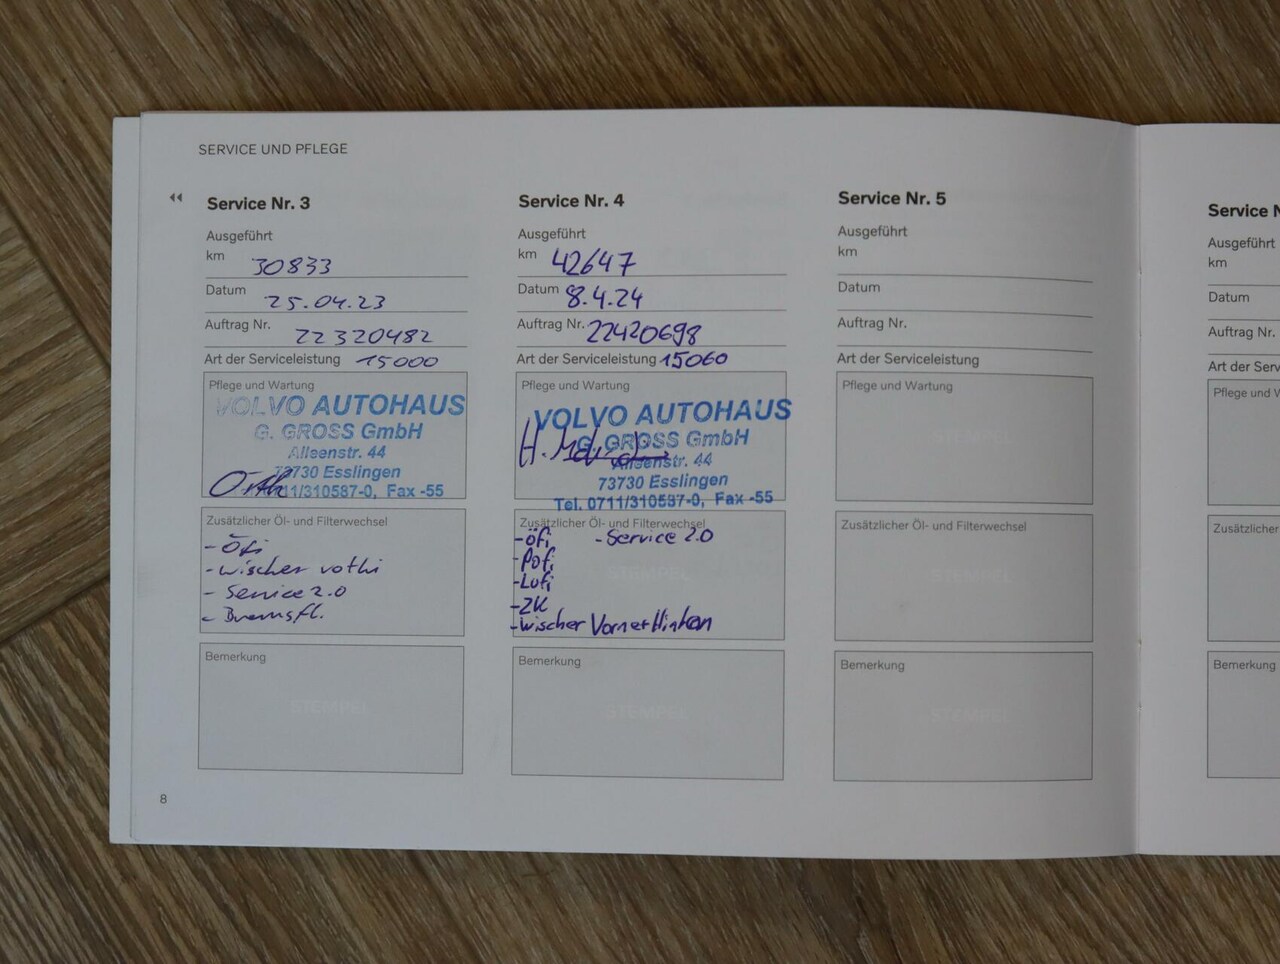 SERVICE UND PFLEGE
Service Nr. 3
Ausgeführt
km 30833
Datum 25.04.23
Auftrag Nr. 22320482
Art der Serviceleistung 15000
Pflege und Wartung
VOLVO AUTOHAUS
G. GROSS GmbH
Alleenstr. 44
73730 Esslingen
0711/310587-0, Fax -55
Orth
Zusätzlicher Öl- und Filterwechsel
- Öfi
- Wischer vo+hi
- Service 2.0
- Bremsfl.
Bemerkung
STEMPEL
8
Service Nr. 4
Ausgeführt
km 42647
Datum 8.4.24
Auftrag Nr. 22420698
Art der Serviceleistung 15060
Pflege und Wartung
VOLVO AUTOHAUS
G. GROSS GmbH
Alleenstr. 44
73730 Esslingen
Tel. 0711/310587-0, Fax -55
Zusätzlicher Öl- und Filterwechsel
- Öfi - Service 2.0
- Pofi
- Lufi
- ZK
- Wischer Vorne+Hinten
STEMPEL
Bemerkung
STEMPEL
Service Nr. 5
Ausgeführt
km
Datum
Auftrag Nr.
Art der Serviceleistung
Pflege und Wartung
STEMPEL
Zusätzlicher Öl- und Filterwechsel
STEMPEL
Bemerkung
STEMPEL
Service N
Ausgeführt
km
Datum
Auftrag Nr.
Art der Se
Pflege und W
Zusätzlicher
Bemerkung